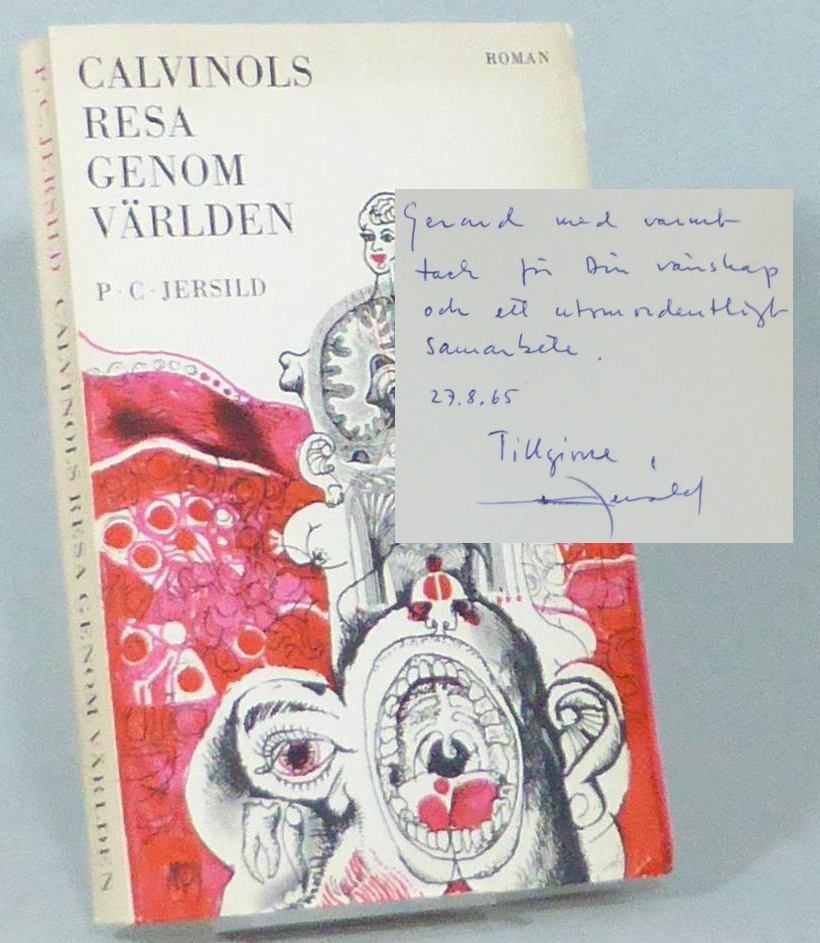 CALVINOLS
RESA
GENOM
VÄRLDEN
P·C·JERSILD
ROMAN
P. C. JERSILD CALVINOLS RESA GENOM VÄRLDEN
Gerard med varmt
tack för Din vänskap
och ett utomordentligt
samarbete.
27.8.65
Tillgivne
Jersild